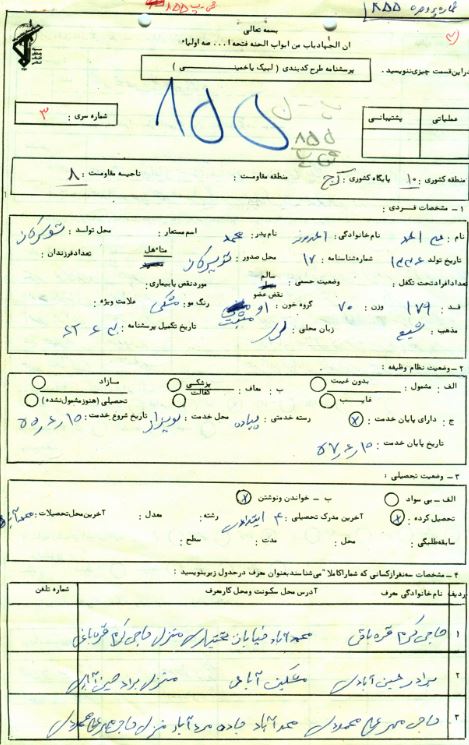 شماره پرونده ۸۵۵
بسمه تعالی
ان الجهاد باب من ابواب الجنه فتحه ا... صه اولیاء
دراین‌قسمت چیزی ننویسید.
پرسشنامه طرح کدبندی ( لبیک یاخمینی )
شماره سری : ۳
۸۵۵
عملیاتی پشتیبانی
منطقه کشوری : ۱۰ پایگاه کشوری : کرج منطقه مقاومت : ناحیه مقاومت : ۸
۱ - مشخصات فردی :
نام : نام‌خانوادگی : نام پدر : محمد اسم مستعار : محل تولد : تویسرکان
تاریخ تولد : ۱۳۳۶ شماره شناسنامه : ۱۷ محل صدور : تویسرکان متاهل تعدادفرزندان :
تعدادافرادتحت تکفل : وضعیت جسمی : سالم نقص عضو موردنقص یابیماری :
قد : ۱۷۹ وزن : ۷۰ گروه خون : رنگ مو : مشکی علامت ویژه :
مذهب : شیعه زبان محلی : تاریخ تکمیل پرسشنامه :
۲ - وضعیت نظام وظیفه :
الف : مشمول : بدون غیبت غایب ب : معاف : پزشکی کفالت مازاد تحصیلی (هنوزمشمول‌نشده)
ج : دارای پایان خدمت : رسته خدمتی : پیاده محل خدمت : تاریخ شروع خدمت :
تاریخ پایان خدمت :
۳ - وضعیت تحصیلی :
الف - بی سواد ب - خواندن ونوشتن
تحصیل کرده : آخرین مدرک تحصیلی : ۴ ابتدایی رشته : معدل : آخرین محل‌تحصیلات :
سابقه‌طلبگی : محل : مدت : سطح :
۴ - مشخصات سه‌نفرازکسانی که شماراکاملا" می‌شناسندبعنوان معرف درجدول زیربنویسید :
ردیف نام‌خانوادگی معرف آدرس محل سکونت ومحل کارمعرف شماره تلفن
۱ حاجی کرم قره باقی محمد آباد خیابان بختیاری منزل حاجی کرم قره باغی
۲ برادر حسین آبادی مشکین آباد منزل برادر حسین آبادی
۳ حاجی محمودی محمد آباد جاده مرد آباد منزل حاجی محمودی